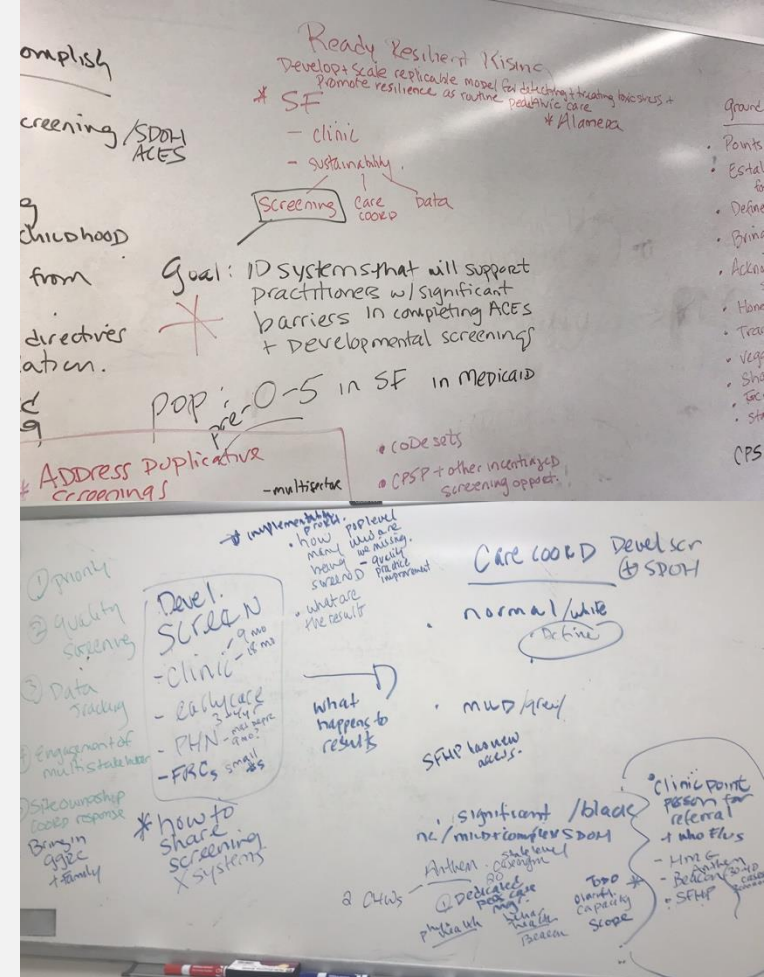 omplish
creening/SDOH
ACES
g
CHILDHOOD
from
directives
ation.
Ready Resilient Rising
Develop + scale replicable model for detecting + treating toxic stress +
Promote resilience as routine pediatric care
* SF
* Alameda
- clinic
- sustainability.
Screening
care
coord
data
Goal: ID systems that will support
practitioners w/significant
barriers in completing ACES
+ Developmental screenings
pop: pre-0-5 in SF in Medicaid
* ADDRESS Duplicative
screenings
-multisector
• CODE sets
• CPSP + other incentivized
screening opport.
ground
• Points
• Estal
fo
• Define
• Bring
• Ackn
• Hono
• Tra
• vega
• Sha
• Sta
CPS
① priority
② quality
screening
③ Data
tracking
Engagement of
multistakeholder
coord response
Bring in
GGRC
+ Family
Devel.
SCREEN
- clinic
- 9 mo
- 18 mo
- early care
- PHN
- FRCs small
#s
* how to
share
screening
X systems
* implementability
• how
many
being
screen'D
pop level
who are
we missing.
- quality
practice
improvement
• what are
the result
what
happens to
results
Care COORD Devel scr
+ SDOH
• normal/white
Define
• mild/grey
SFHP has new
access.
• significant /black
nc/mild+complex SDOH
Anthem
state level
20
2 CHWs
① Dedicated
peds case
mgr.
phy health
health
Beacon
capacity
scope
• clinic point
person for
referral
+ who Else
- HMG
Anthem
- Beacon
• SFHP